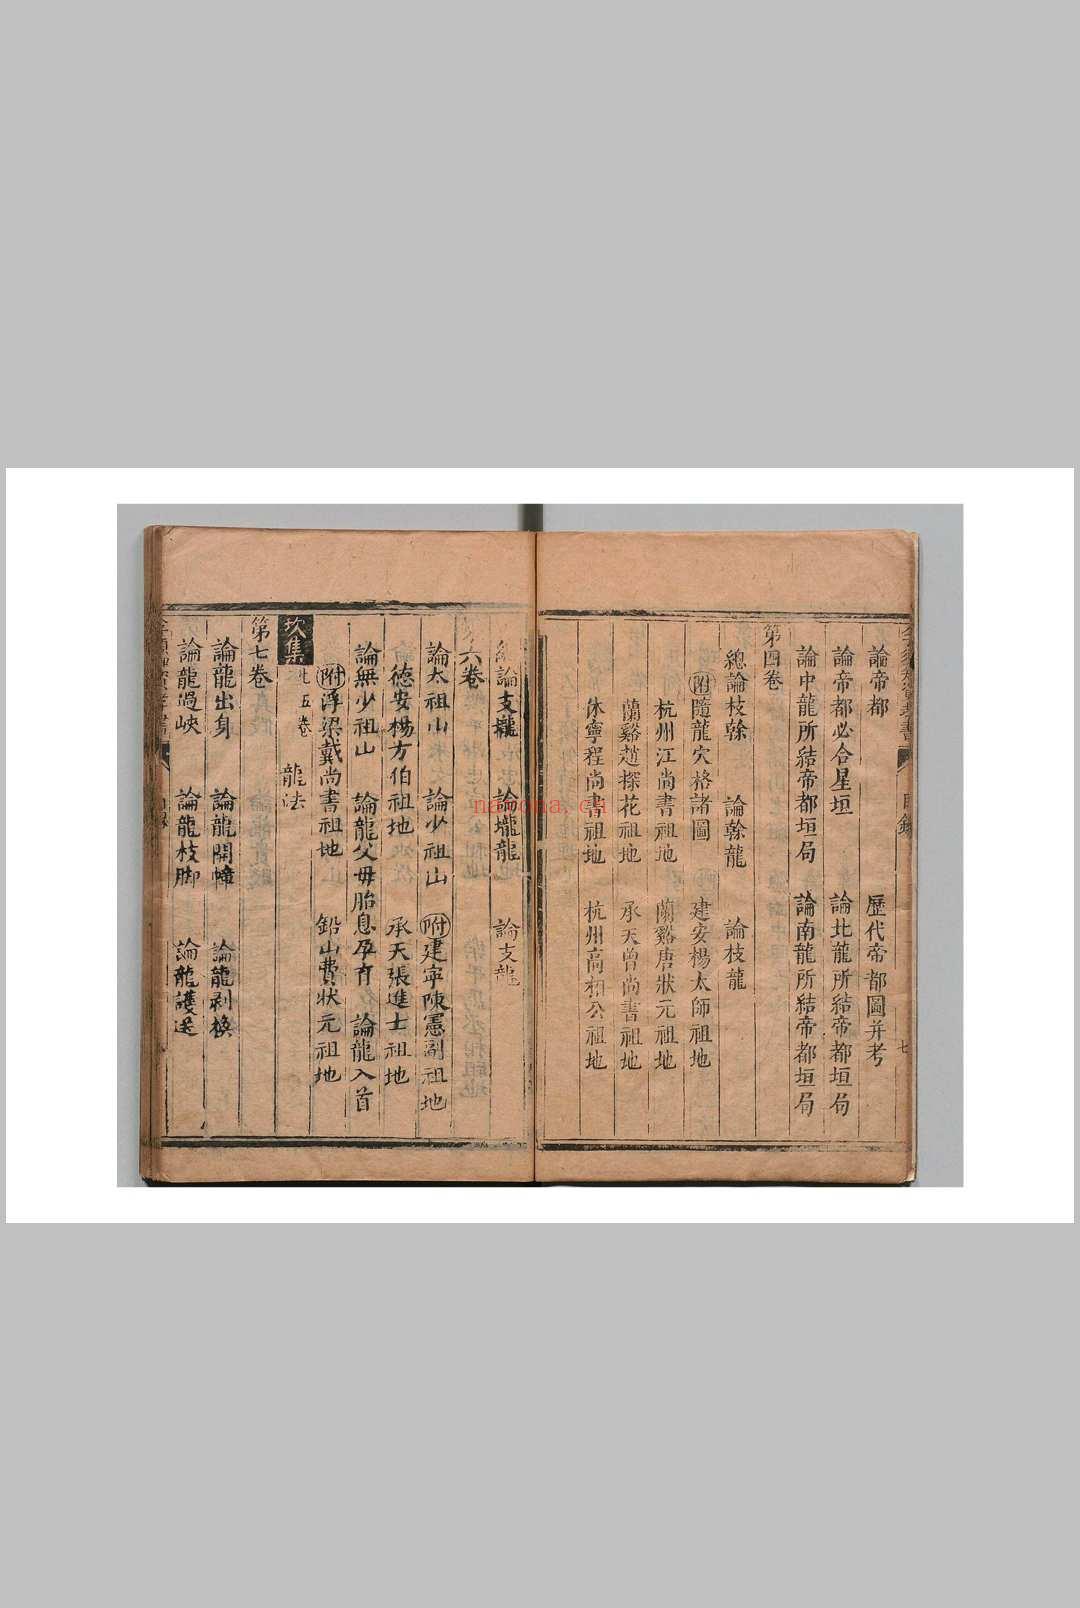 論帝都 歷代帝都圖并考
論帝都必合星垣 論北龍所結帝都垣局
論中龍所結帝都垣局 論南龍所結帝都垣局
第四卷
總論枝榦 論榦龍 論枝龍
附隨龍穴格諸圖 建安楊太師祖地
杭州江尚書祖地 蘭谿唐狀元祖地
蘭谿趙探花祖地 承天曾尚書祖地
休寧程尚書祖地 杭州高相公祖地
論支壠 論壠龍 論支龍
六卷
論太祖山 論少祖山 附建寧陳憲副祖地
德安楊方伯祖地 承天張進士祖地
論無少祖山 論龍父母胎息孕育 論龍入首
附浮梁戴尚書祖地 鉛山費狀元祖地
坎集 五卷 龍法
第七卷
論龍出身 論龍開幛 論龍剥換
論龍過峽 論龍枝脚 論龍護送
七
navona.cn